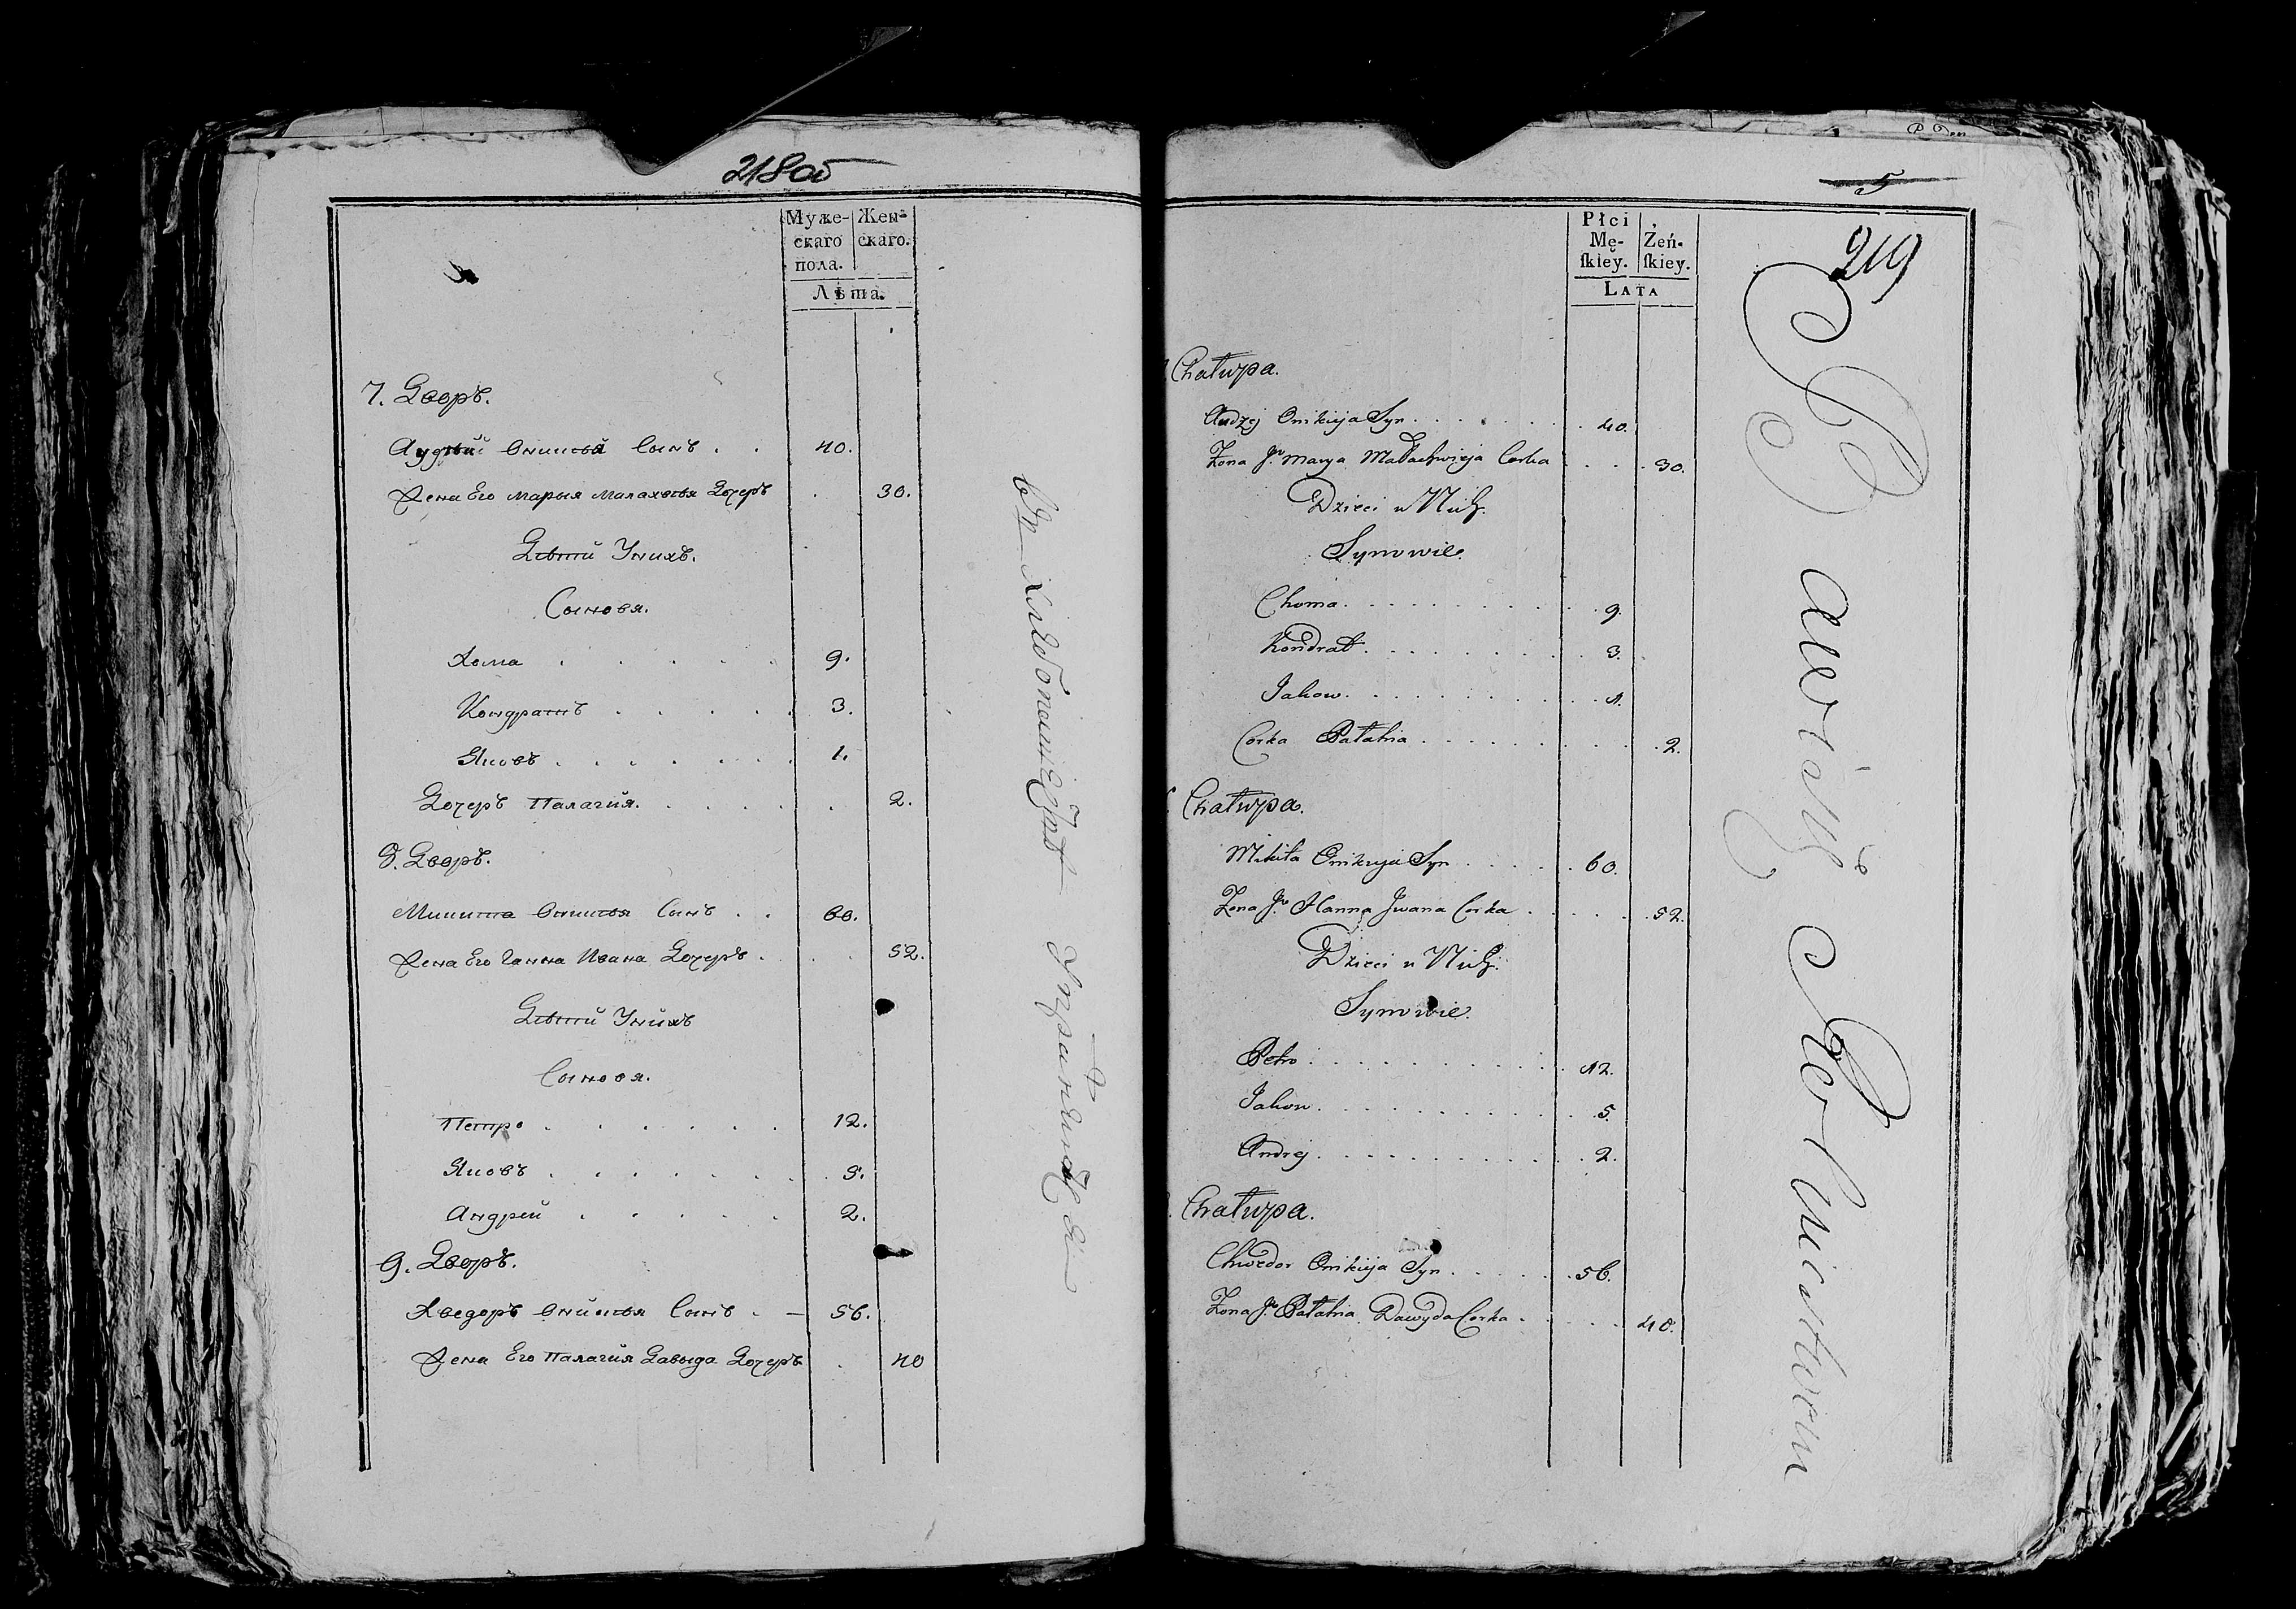 218об
Муже-
скаго
пола.
Жен-
скаго.
Лѣта.
7. Дворъ.
Андрей Оникѣя Сынъ . . 40.
Жена Его Марыя Малахвѣя Дочеръ . 30.
Дѣтти Унихъ.
Сыновя.
Хома . . . . . 9.
Кондратъ . . . . . 3.
Яковъ . . . . . . 1.
Дочеръ Палагия. . . . . . 2.
8. Дворъ.
Микита Оникѣя Сынъ . . 60.
Жена Его Ганна Ивана Дочеръ . . . 52.
Дѣтти Унихъ
Сыновя.
Петро . . . . . . 12.
Яковъ . . . . . . 5.
Андрей . . . . . 2.
9. Дворъ.
Хведоръ Оникѣя Сынъ . — 56.
Жена Его Палагия Давыда Дочеръ . 40
5
219
Płci
Mę-
ſkiey.
Żeń-
ſkiey.
LATA
Chałupa.
Andrzej Onikieja Syn . . . . . . . 40.
Żona Jo Marya Małachwieja Corka . . . 30.
Dzieci u Nich.
Synowie.
Choma . . . . . . . . . . . 9.
Kondrat . . . . . . . . . 3.
Jakow . . . . . . . . . 1.
Corka Pałahia . . . . . . . . . 2.
Chałupa.
Mikita Onikieja Syn . . . . . 60.
Żona Jo Hanna Jwana Corka . . . . . 52.
Dzieci u Nich.
Synowie.
Petro . . . . . . . . . . . 12.
Jakow . . . . . . . . . . . 5.
Andrej . . . . . . . . . . . 2.
Chałupa.
Chwedor Onikieja Syn . . . . . . 56.
Żona Jo Pałahia Dawyda Corka . . . . . 40.